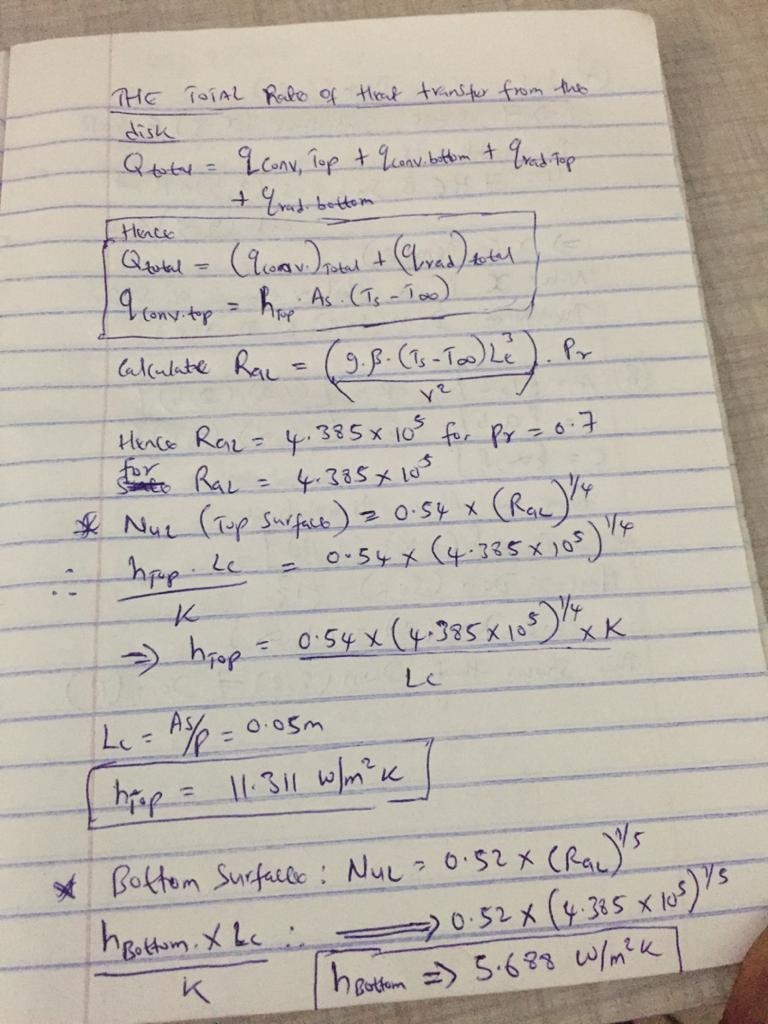 THE TOTAL Rate of Heat transfer from the
disk
Qtotal = qconv, Top + qconv.bottom + qrad.Top
+ qrad.bottom
Hence
Qtotal = (qconv.)Total + (qrad)total
qconv.top = hTop . As . (Ts - T∞)
Calculate RaL = (g.β.(Ts - T∞)Lc³ / ν²) . Pr
Hence RaL = 4.385 x 10⁵ for Pr = 0.7
for RaL = 4.385 x 10⁵
* NuL (Top Surface) = 0.54 x (RaL)^1/4
∴ hTop . Lc / K = 0.54 x (4.385 x 10⁵)^1/4
⇒ hTop = 0.54 x (4.385 x 10⁵)^1/4 x K / Lc
Lc = As/p = 0.05m
hTop = 11.311 W/m²K
* Bottom Surface : NuL = 0.52 x (RaL)^1/5
hBottom x Lc / K ∴ ⟹ 0.52 x (4.385 x 10⁵)^1/5
hBottom ⇒ 5.688 W/m²K